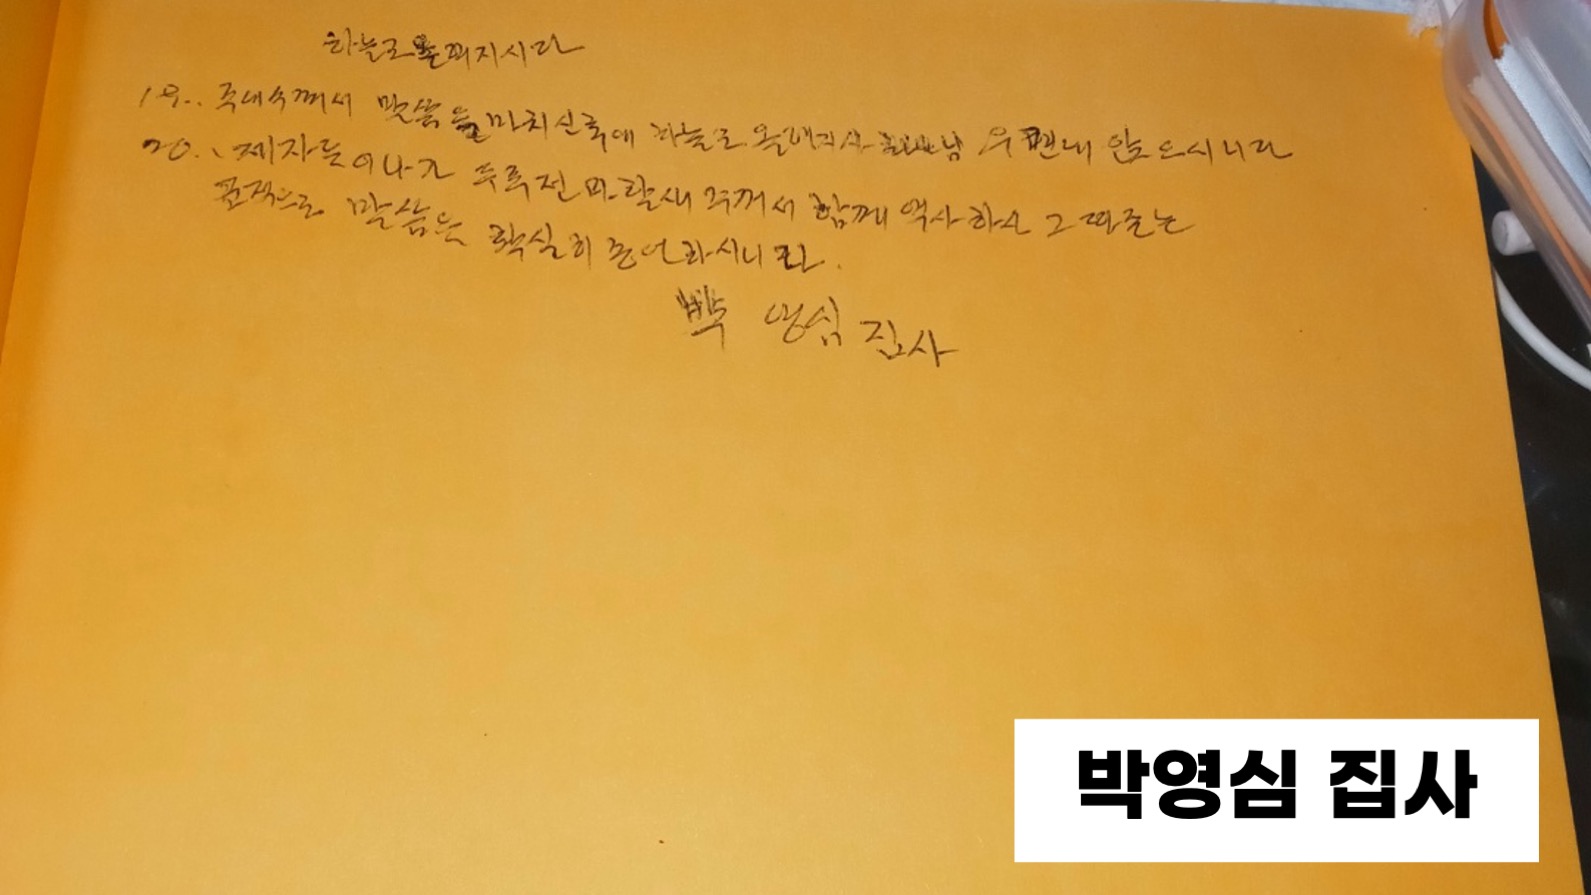 하늘로 올려지시다
19.. 주예수께서 말씀을 마치신 후에 하늘로 올려지사 하나님 우편에 앉으시니라
20. 제자들이 나가 두루 전파할새 주께서 함께 역사하사 그 따르는
표적으로 말씀을 확실히 증언하시니라.
박 영심 집사
박영심 집사